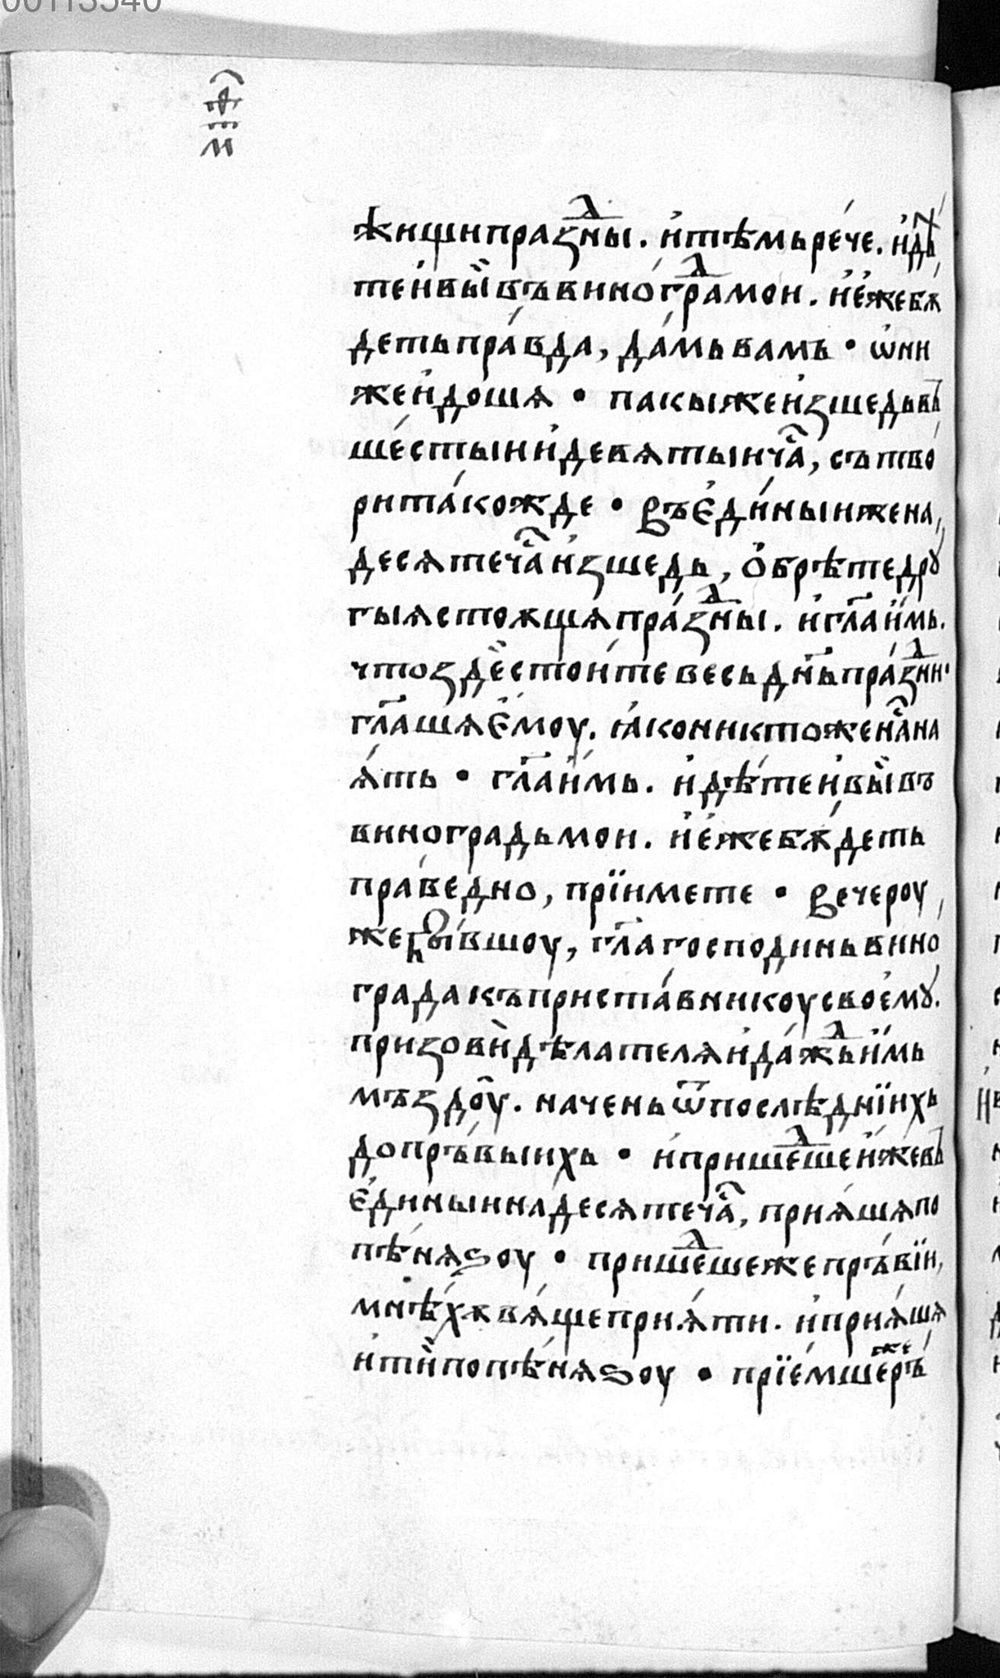 00113540
м
ѫщи праꙁⷣны. и҆ тѣмь ре́че. и҆дѣ́
те и҆ вы̀ въ вино́граⷣ мои. и҆ є҆же бѫ
деть пра́вда, да́мь вамь • ѡ҆ни
же и҆до́шѧ • пакы же и҆ꙁшедь въ
ше́стыи и҆ девѧтыи чаⷭ҇, сътво
ри та́кожде • въ є҆ди́ныи же на
десѧте чаⷭ҇ и҆ꙁшедь, ѻ҆брѣте дрꙋ
гыѧ стоѫщѧ пра́ꙁⷣны. и҆ гл҃а и҆̀мь.
что ꙁдѐ стои́те весь дн҃ь пра́ꙁⷣни.
гл҃ашѧ є҆моу. ꙗ҆ко никтоже наⷭ҇ на
ѧ́ть • гл҃а и҆̀мь. и҆дѣ́те и҆ вы̀ въ
виноградь мои. и҆ є҆́же бѫ́деть
пра́ведно, прїимете • вечероу
же бы́вшоу, гл҃а господинь вино
града къ приста́вникоу своємꙋ̀.
приꙁовѝ дѣлателѧ и҆ да́жⷣь и҆̀мь
мъꙁдоу̑. начень ѿ послѣ́днїихь
до пръ́выихь • и҆ пришеⷣше и҆̀же въ
є҆ди́ныи на десѧте чаⷭ҇, прїѧ́шѧ по
пѣ́нѧꙃоу • пришеⷣше же пръ́вїи,
мнѣ́хѫ вѧ́ще прїѧ́ти. и҆ прїѧ́шѧ
и҆ тїи̑ по пѣ́нѧꙃоу • прїе́мше же ръ